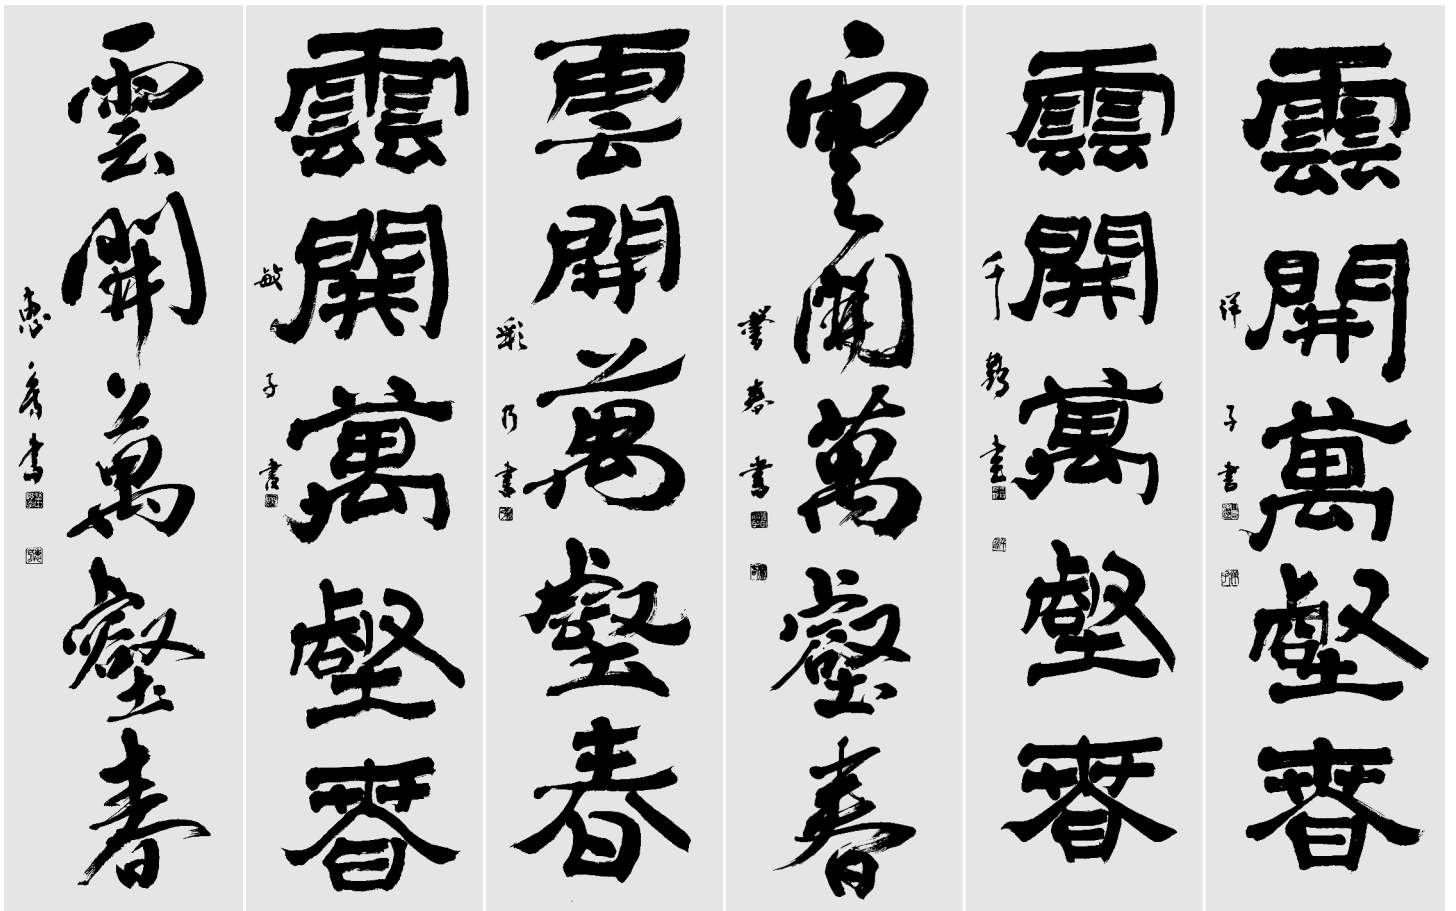 雲開萬壑春
祥子書
雲開萬壑春
千鶴書
雲開萬壑春
春書
雲開萬壑春
彩乃書
雲開萬壑春
敏子書
雲開萬壑春
惠香書